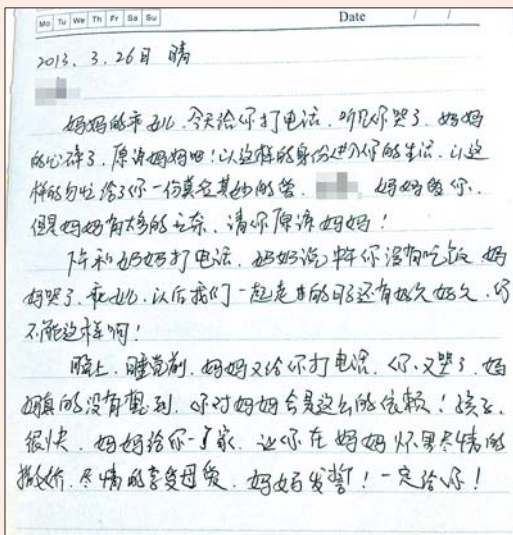 Mo Tu We Th Fr Sa Su Date / /
2013. 3. 26日 晴
妈妈的乖女儿.今天给你打电话.听见你哭了.妈妈
的心碎了.原谅妈妈吧!以这样的身份进入你的生活.以这
样的匆忙给了你一份莫名其妙的爱. 妈妈爱你.
但是妈妈有太多的无奈.请你原谅妈妈!
下午和奶奶打电话.奶奶说中午你没有吃饭.妈
妈哭了.乖女儿.以后我们一起走的日子还有好久好久.你
不能这样啊!
晚上.睡觉前.妈妈又给你打电话.你又哭了.妈
妈真的没有想到.你对妈妈会是这么的依赖!孩子.
很快.妈妈给你一个家.让你在妈妈怀里尽情的
撒娇.尽情的享受母爱.妈妈发誓!一定给你!